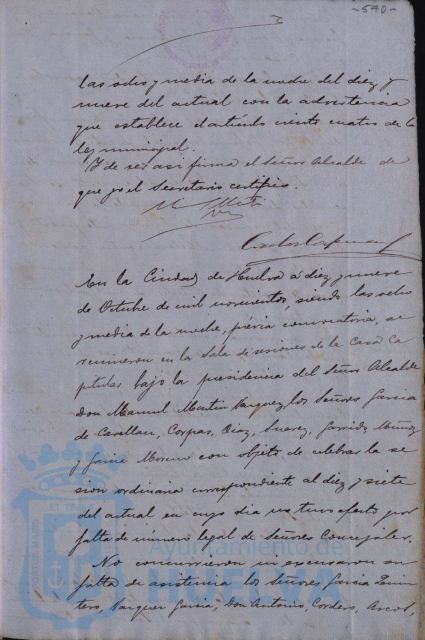 -570-
las ocho y media de la noche del diez y
nueve del actual con la advertencia
que establece el artículo ciento cuatro de la
ley municipal.
Y de ser así firma el Señor Alcalde de
que yo el Secretario certifico.
En la Ciudad de Huelva á diez y nueve
de Octubre de mil novecientos, siendo las ocho
y media de la noche, previa convocatoria, se
reunieron en la Sala de sesiones de la Casa Ca
pitular bajo la presidencia del Señor Alcalde
Don Manuel Martin Vazquez, los Señores Garcia
de Casellan, Corpas, Diaz, Suarez, Garrido, Muñoz
y Jaime Moreno con objeto de celebrar la se
sion ordinaria correspondiente al diez y siete
del actual en cuyo dia no tuvo efecto por
falta de número legal de Señores Concejales.
No concurrieron ni excusaron su
falta de asistencia los Señores Garcia
Vazquez Garcia, Don Antonio, Cordero,
Ayuntamiento de
HUELVA